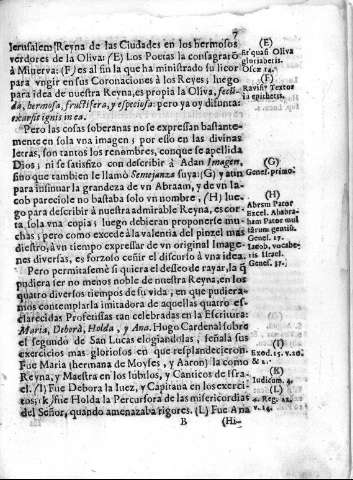 7
Ierusalem Reyna de las Ciudades en los hermosos
verdores de la Oliva: (E) Los Poetas la consagrarõ
à Minerva: (F) es al fin la que ha ministrado su licor
para vngir en sus Coronaciones à los Reyes; luego
para idea de nuestra Reyna, es propia la Oliva, fecũ-
da, hermosa, fructifera, y especiosa: pero ya oy difunta:
exarsit ignis in ea.
Pero las cosas soberanas no se expressan bastante-
mente en sola vna imagen; por esso en las divinas
letras, son tantos los renombres, conque se apellida
Dios; ni se satisfizo con describir à Adan Imagen,
sino que tambien le llamò Semejanza suya: (G) y aun
para insinuar la grandeza de vn Abraam, y de vn Ia-
cob pareciole no bastaba solo vn nombre, (H) lue-
go para describir à nuestra admirable Reyna, es cor-
ta, sola vna copia; luego debieran proponerse mu-
chas; pero como excede à la valentia del pinzel mas
diestro, à vn tiempo expressar de vn original Image-
nes diversas, es forzoso ceñir el discurso à vna idea.
Pero permitaseme si quiera el desseo de rayar, la q̃
pudiera ser no menos noble de nuestra Reyna, en los
quatro diversos tiempos de su vida, en que pudiera-
mos contemplarla imitadora de aquellas quatro es-
clarecidas Profetissas tan celebradas en la Escritura:
Maria, Deborà, Holda, y Ana. Hugo Cardenal sobre
el segundo de San Lucas elogiandolas, señala sus
exercicios mas gloriosos en que resplandecieron.
Fue Maria (hermana de Moyses, y Aaron) la como
Reyna, y Maestra en los Iubilos, y Canticos de Isra-
el. (I) Fue Debora la Iuez, y Capitana en los exerci-
tos; (K) fue Holda la Percursora de las misericordias
del Señor, quando amenazaba rigores. (L) Fue Ana
B
(Hi-
(E)
Et quasi Oliva
gloria eius.
Oseæ 14.
(F)
Ravisi9 Textor
in epithetis.
(G)
Genes. primo.
(H)
Abram Pater
Excel. Ababra-
ham Pater mul
tarum gentiũ.
Genes. 17.
Iacob, vocabe-
ris Israel.
Genes. 37.
(I)
Exod. 15. v. 20.
& 2.
(K)
Iudicum. 4.
(L)
4. Reg. 22.
v. 14.